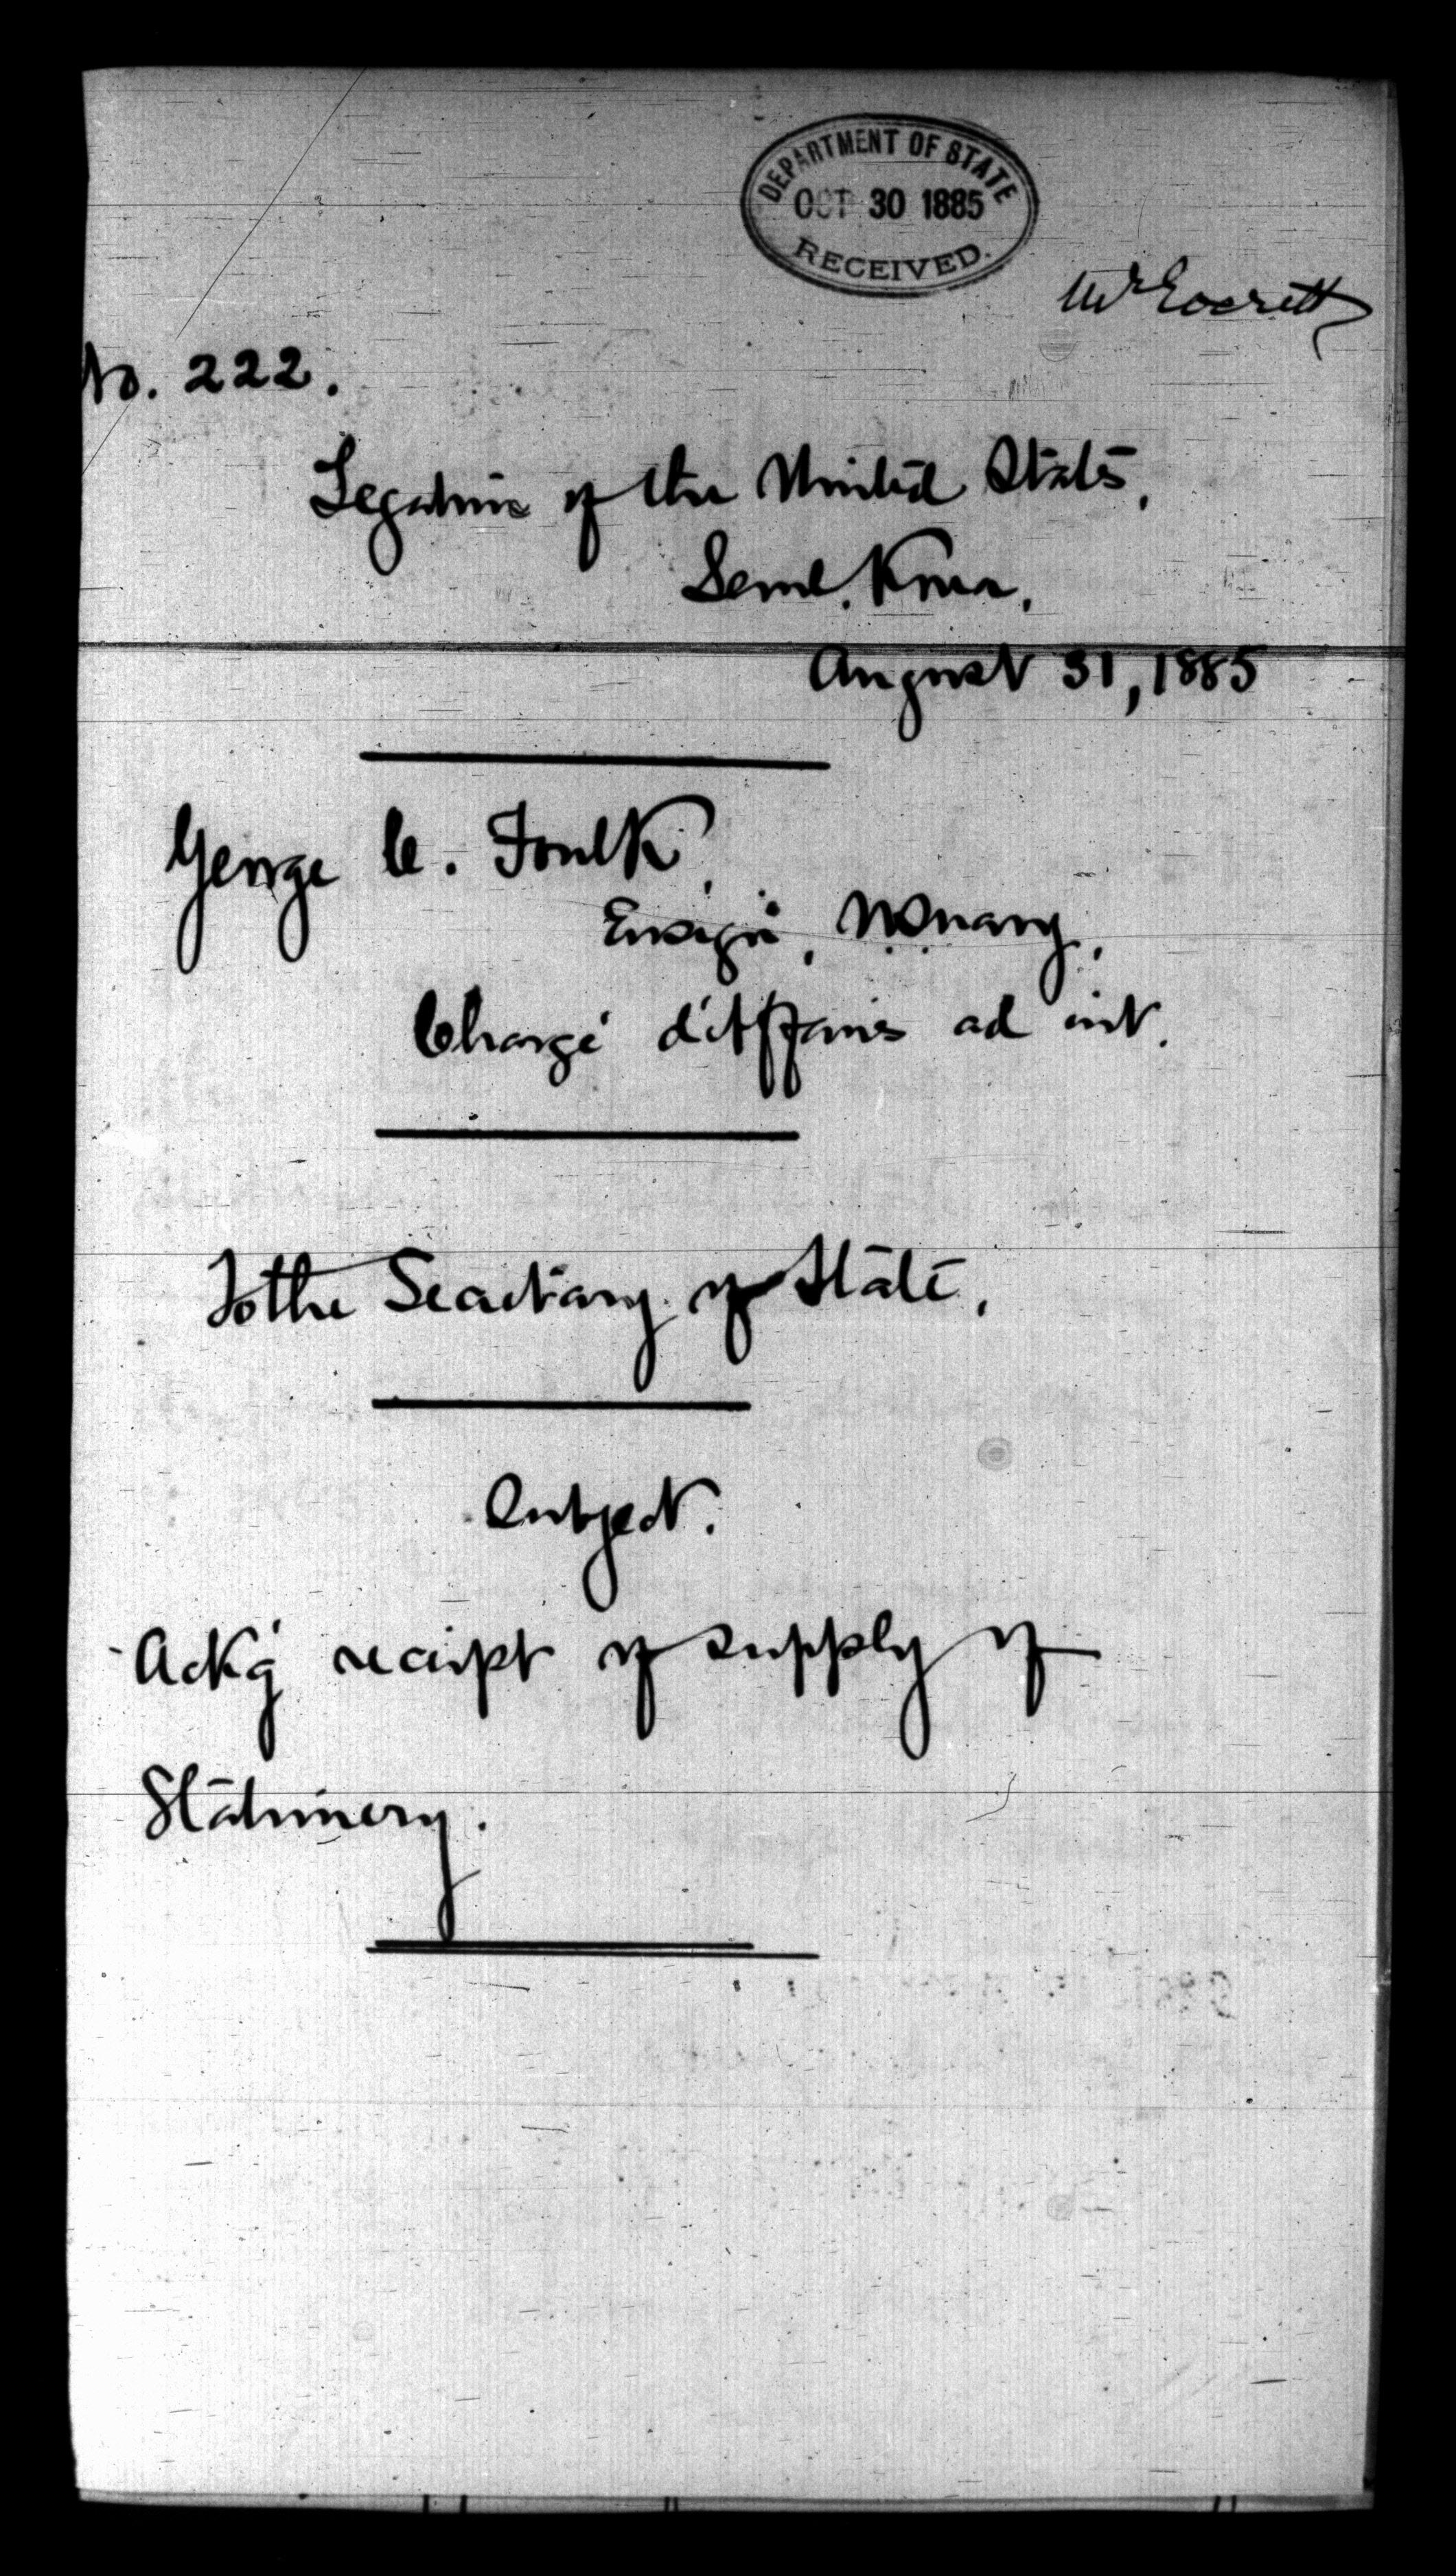 DEPARTMENT OF STATE
OCT 30 1885
RECEIVED.
Mr Everett
No. 222.
Legation of the United States,
Seoul, Korea,
August 31, 1885
George C. Foulk,
Ensign, U.S. Navy,
Chargé d'Affaires ad int.
To the Secretary of State,
Subject.
Ackg receipt of supply of
Stationery.